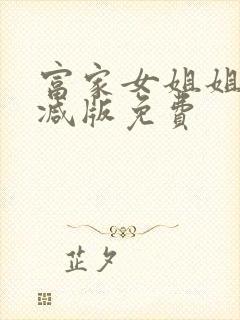 富家女姐姐
减版免费
芷夕